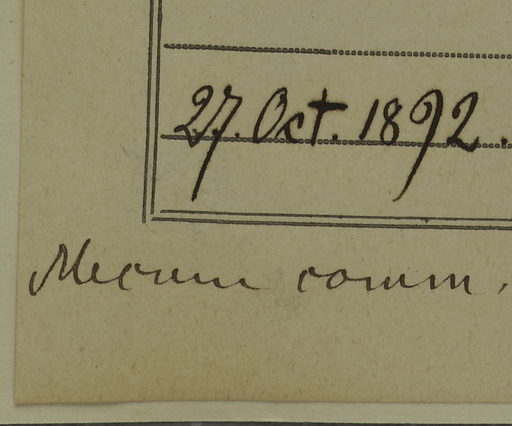 27. Oct. 1892.
Mecum comm.